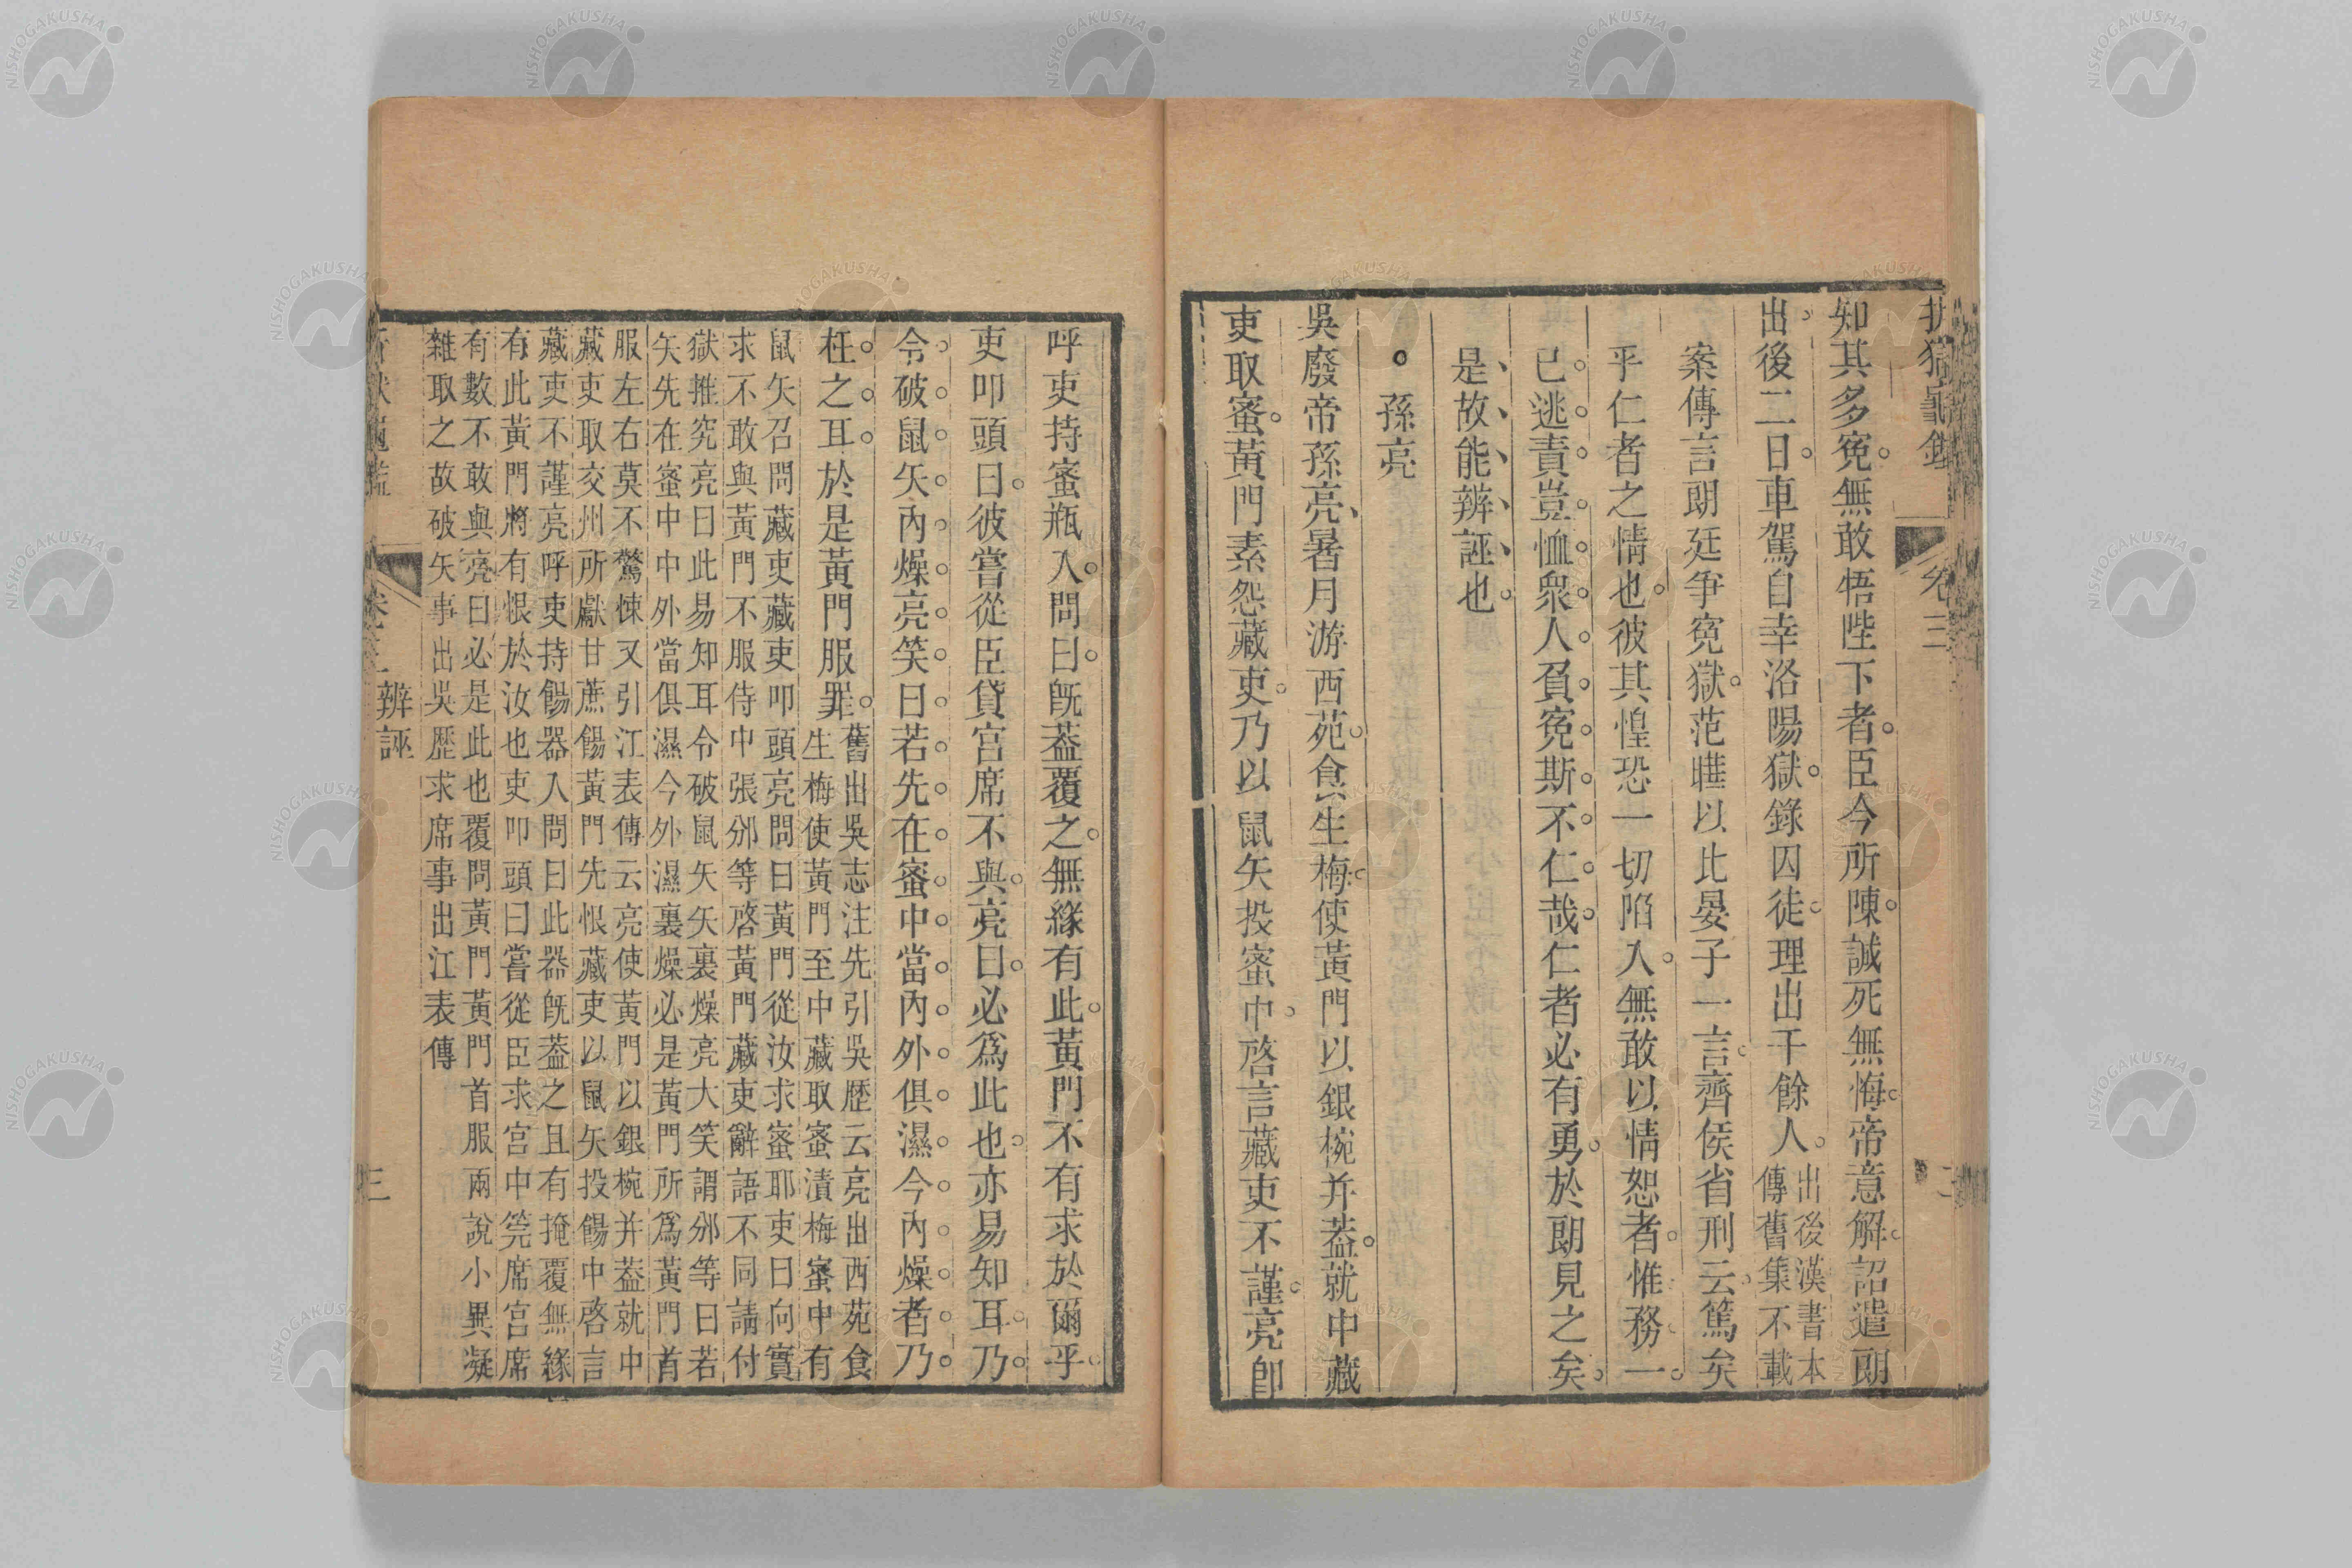 知其多寃無敢悟陛下者臣今所陳誠死無悔帝意解詔遣朗
出後二日車駕自幸洛陽獄錄囚徒理出千餘人出後漢書本
傳舊集不載
案傳言朗廷爭寃獄范曄以此晏子一言齊侯省刑云篤矣
乎仁者之情也彼其惶恐一切陷入無敢以情恕者惟務一
已逃責豈恤衆人負寃斯不仁哉仁者必有勇於朗見之矣
是故能辨誣也
孫亮
吳廢帝孫亮暑月游西苑食生梅使黃門以銀椀并葢就中藏
吏取蜜黃門素怨藏吏乃以鼠矢投蜜中啓言藏吏不謹亮卽
卷三
呼吏持蜜瓶入問曰旣葢覆之無緣有此黃門不有求於爾乎
吏叩頭曰彼嘗從臣貸宮席不與亮曰必爲此也亦易知耳乃
令破鼠矢內燥亮笑曰若先在蜜中當內外俱濕今內燥者乃
枉之耳於是黃門服罪舊出吳志注先引吳歷云亮出西苑食
生梅使黃門至中藏取蜜漬梅蜜中有
鼠矢召問藏吏藏吏叩頭亮問曰黃門從汝求蜜耶吏曰向實
求不敢與黃門不服侍中張邠等啓黃門藏吏辭語不同請付
獄推究亮曰此易知耳令破鼠矢矢裏燥亮大笑謂邠等曰若
矢先在蜜中中外當俱濕今外濕裏燥必是黃門所爲黃門首
服左右莫不驚悚又引江表傳云亮使黃門以銀椀并葢就中
藏吏取交州所獻甘蔗餳黃門先恨藏吏以鼠矢投餳中啓言
藏吏不謹亮呼吏持餳器入問曰此器旣葢之且有掩覆無緣
有此黃門將有恨於汝也吏叩頭曰嘗從臣求宮中筦席宮席
有數不敢與亮曰必是此也覆問黃門黃門首服兩說小異凝
雜取之故破矢事出吳歷求席事出江表傳
辨誣
三